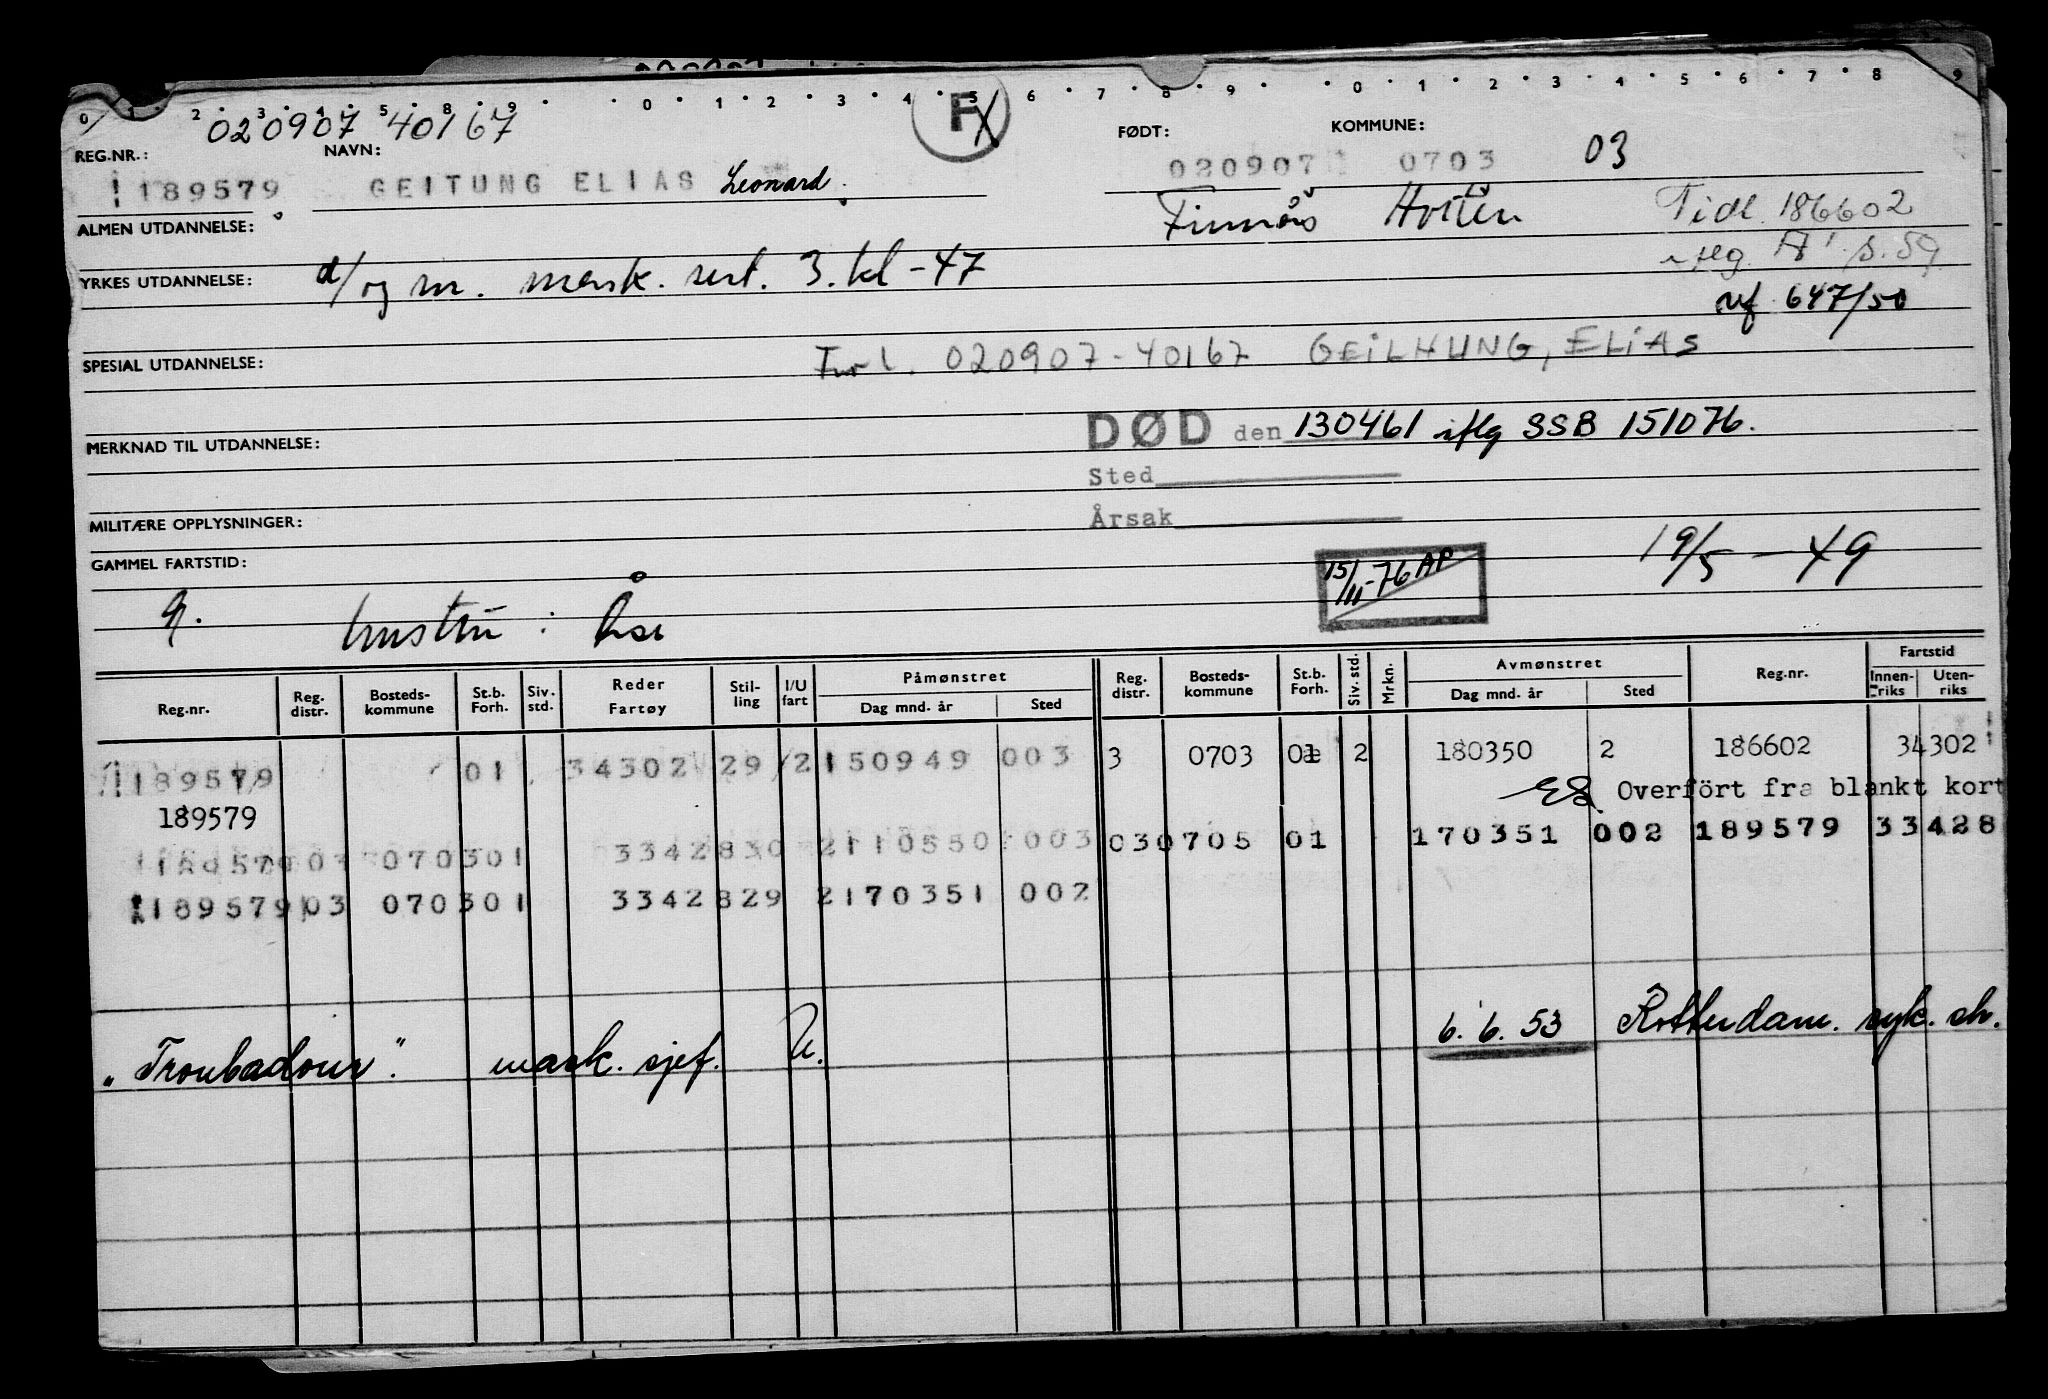 0 1 2 3 4 5 8 9 0 1 2 3 4 5 6 7 8 9 0 1 2 3 4 5 6 7 8 9
020907 40167
F
REG.NR.: NAVN: FØDT: KOMMUNE:
189579 GEITUNG ELIAS Leonard. 020907 0703 03
ALMEN UTDANNELSE: Finnås Horten Tidl. 186602
YRKES UTDANNELSE: d/og m. mask. sert. 3. kl -47
s. 59
647/50
SPESIAL UTDANNELSE: 020907-40167 GEILHUNG, ELIAS
MERKNAD TIL UTDANNELSE: DØD den 130461 iflg SSB 151076.
Sted
MILITÆRE OPPLYSNINGER: Årsak
GAMMEL FARTSTID: 15/11-76 AP 19/5-49
hustru: Åse
Reg.nr. Reg. distr. Bosteds-kommune St.b. Forh. Siv. std. Reder Fartøy Stil-ling I/U fart Påmønstret Dag mnd. år Sted Reg. distr. Bosteds-kommune St.b. Forh. Siv. std. Mrkn. Avmønstret Dag mnd. år Sted Reg.nr. Fartstid Innen-riks Uten-riks
189579 01 34302 29 2 150949 003 3 0703 01 2 180350 2 186602 34302
189579 Overført fra blankt kort
189579 03 0703 01 33428 30 2 110550 003 03 0705 01 170351 002 189579 33428
189579 03 0703 01 33428 29 2 170351 002
"Troubadour". mask. sjef. U. 6. 6. 53 Rotterdam. syk. ch.